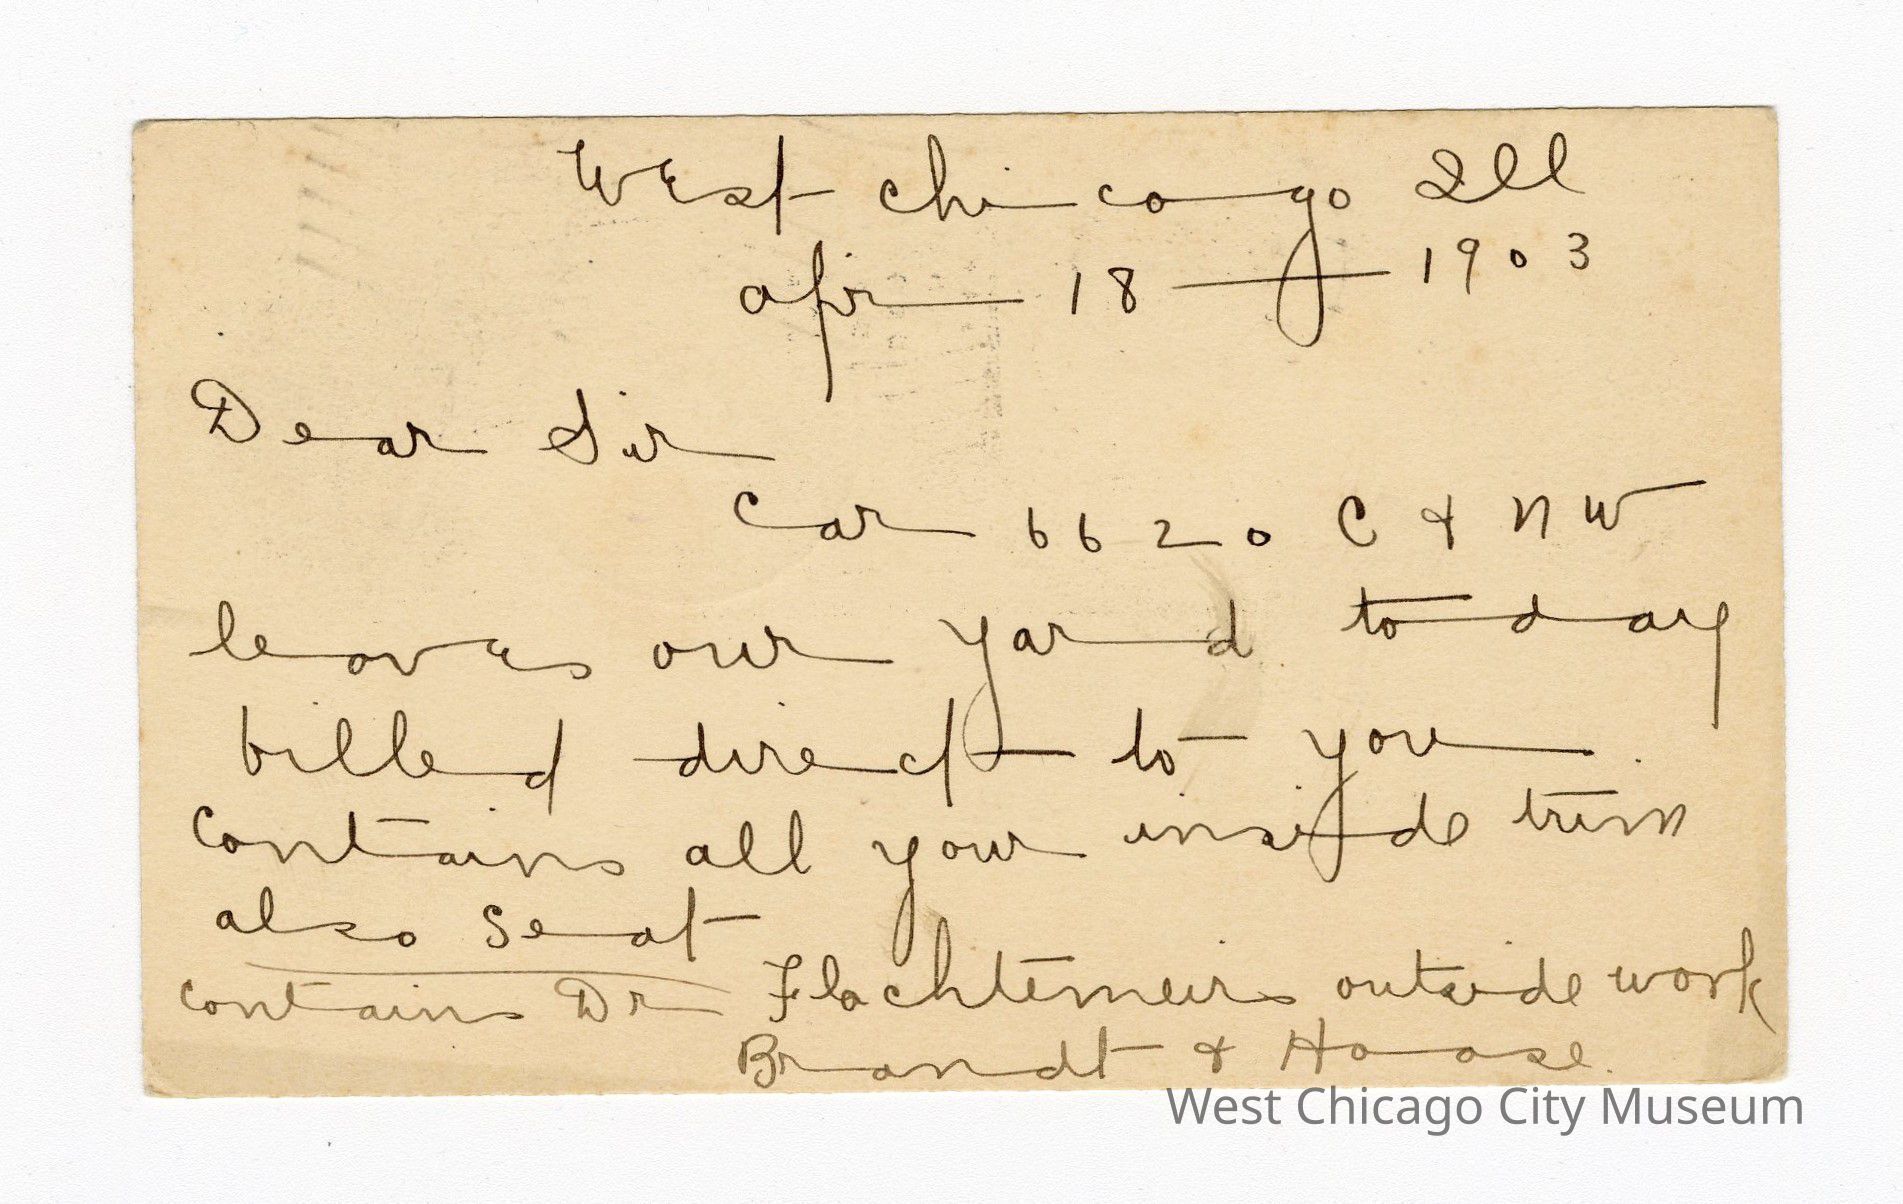 West Chicago Ill
Apr 18 — 1903
Dear Sir
Car 6620 C & NW
leaves our yard to day
billed direct to you
Contains all your inside trim
also Seat
contains Dr Flachtemeirs outside work
Brandt & Haase.
West Chicago City Museum